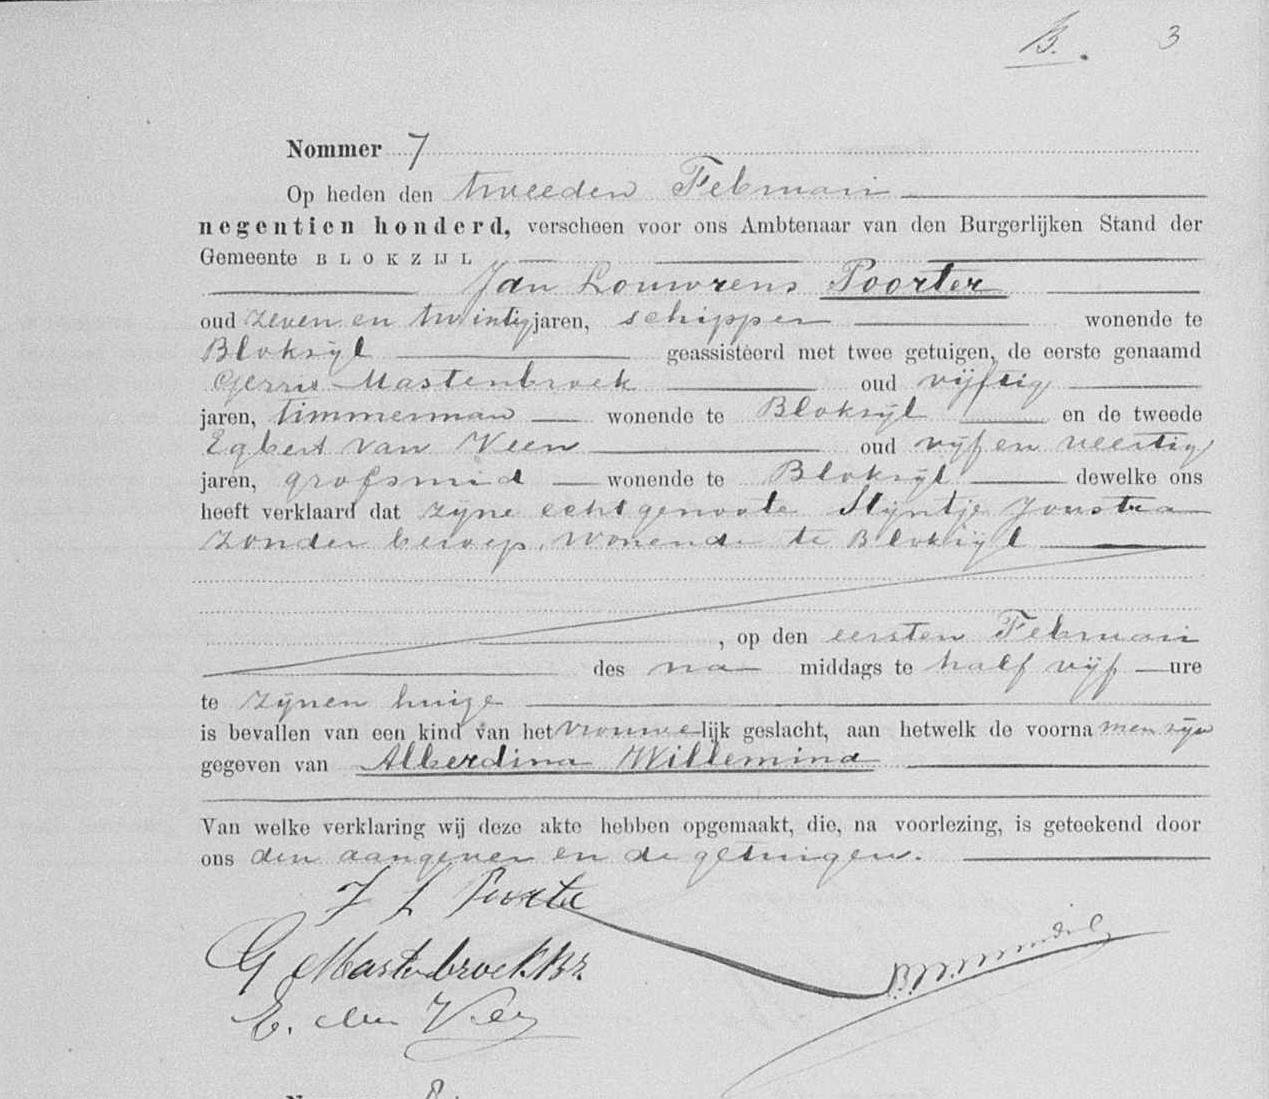 B. 3
Nommer 7
Op heden den tweeden Februari
negentien honderd, verscheen voor ons Ambtenaar van den Burgerlijken Stand der
Gemeente BLOKZIJL
Jan Louwrens Poorter
oud zeven en twintig jaren, schipper wonende te
Bloksijl geassisteerd met twee getuigen, de eerste genaamd
Gerrit Mastenbroek oud vijftig
jaren, timmerman wonende te Bloksijl en de tweede
Egbert van Veen oud vijf en veertig
jaren, grofsmid wonende te Bloksijl dewelke ons
heeft verklaard dat zijne echtgenoote Stijntje Joustra
zonder beroep, wonende te Bloksijl
, op den eersten Februari
des na middags te half vijf ure
te zijnen huize
is bevallen van een kind van het vrouwelijk geslacht, aan hetwelk de voornamen zijn
gegeven van Alberdina Willemina
Van welke verklaring wij deze akte hebben opgemaakt, die, na voorlezing, is geteekend door
ons den aangever en de getuigen.
J L Poorter
G Mastenbroek
E. van Veen